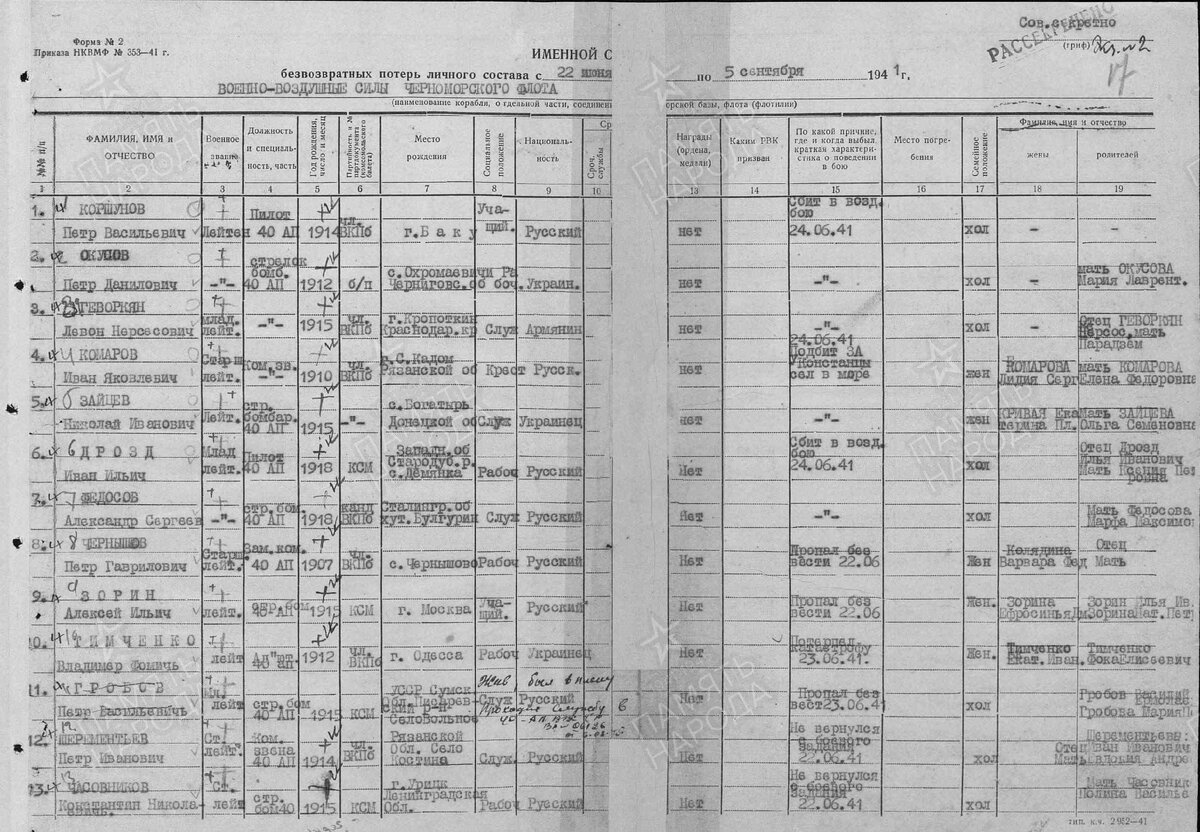 Форма № 2
Приказа НКВМФ № 353—41 г.
Сов.секретно
(гриф)
РАССЕКРЕЧЕНО
Экз.№2
17
ИМЕННОЙ С
безвозвратных потерь личного состава с 22 июня по 5 сентября 1941 г.
ВОЕННО-ВОЗДУШНЫЕ СИЛЫ ЧЕРНОМОРСКОГО ФЛОТА
(наименование корабля, отдельной части, соединен орской базы, флота (флотилии)
№№ п/п ФАМИЛИЯ, ИМЯ и ОТЧЕСТВО Военное звание Должность и специальность, часть Год рождения, число и месяц Партийность, и № партдокумента (комсомольского билета) Место рождения Социальное положение Национальность Ср Сроч. службы Награды (ордена, медали) Каким РВК призван По какой причине, где и когда выбыл, краткая характеристика о поведении в бою Место погребения Семейное положение Фамилия, имя и отчество жены родителей
1 2 3 4 5 6 7 8 9 10 13 14 15 16 17 18 19
1. КОРШУНОВ Пилот чл. Уча- Сбит в возд. бою
Петр Васильевич Лейтен 40 АП 1914 ВКПб г.Баку щий. Русский нет 24.06.41 хол - -
2. ОКУСОВ стрелок бомб. с.Охромаевичи Ра мать ОКУСОВА
Петр Данилович -"- 40 АП 1912 б/п Черниговс.об боч. Украин. нет -"- хол - Мария Лаврент.
3. ГЕВОРКЯН Млад. чл. г.Кропоткин Отец ГЕВОРКЯН
Левон Нерсесович лейт. -"- 1915 ВКПб Краснодар.кр Служ Армянин нет -"- хол - Нерсос,мать
24.06.41 Парадзем
4. КОМАРОВ Старш Ком.зв. чл. г.С.Кадом Подбит ЗА У Констанцы КОМАРОВА мать КОМАРОВА
Иван Яковлевич лейт. -"- 1910 ВКПб Рязанской об Крест Русск. нет сел в море жен Лидия Серг Елена Федоровна
5. ЗАЙЦЕВ стр. с.Богатырь КРИВАЯ Ека Мать ЗАЙЦЕВА
Николай Иванович Лейт. бомбар. 40 АП 1915 -"- Донецкой об Служ Украинец нет -"- жен терина Пл. Ольга Семеновна
6. ДРОЗД Млад Пилот Западн.об Сбит в возд. бою Отец Дрозд
Иван Ильич лейт. 40 АП 1918 КСМ Стародуб.р. с.Демянка Рабоч Русский Нет 24.06.41 хол Илья Иванович
Мать Ксения Пет
ровна
7. ФЕДОСОВ стр.бом. канд Сталингр.об Мать Федосова
Александр Сергеев -"- 40 АП 1918 ВКПб хут.Булгурин Служ Русский Нет -"- хол Марфа Максимо
8. ЧЕРНЫШОВ Старш. Зам.ком. чл. Пропал без Колядина Отец
Петр Гаврилович лейт. 40 АП 1907 ВКПб с.Чернышово Рабоч Русский Нет вести 22.06 Жен Варвара Фед Мать
9. ЗОРИН стр.бом Уча- Пропал без Жен. Зорина Зорин Илья Ив.
Алексей Ильич лейт. 40 АП 1915 КСМ г. Москва щий. Русский Нет вести 22.06 Ефросинья Дм Зорина Нат.Петр
10. ТИМЧЕНКО Ад"ют. чл. Потерпел катастрофу Тимченко Тимченко
Владимир Фомичь лейт 40 ап. 1912 ВКПб г. Одесса Рабоч Украинец Нет 23.06.41. Жен. Екат.Иван. Фока Елисеевич
11. ГРОБОВ Мл. УССР Сумск. Жив, был в плену
Петр Васильевичь лейт стр.бом 40 АП 1915 КСМ Село Вольное Служ Русский Нет Пропал без вест 23.06.41 хол Гробов Василий
Ермолае
Гробова Мария
12. ШЕРЕМЕНТЬЕВ Ст. Ком. чл. Рязанской Не вернулся с боевого Шерементьевы:
Петр Иванович лейт. звена 40 АП 1914 ВКПб Обл. Село Костина Служ. Русский Нет задания 22.06.41 хол Отец Иван Иванович
Мать Евдокия Андре
13. ЧАСОВНИКОВ Ст. стр. г.Урицк Не вернулся с боевого Мать Часовник
Константан Никола- лейт бом40 1915 КСМ Ленинградская Обл. Рабоч Русский Нет задания 22.06.41 хол Полина Василье
евичь.
тип. к.ч. 2952—41
ПАМЯТЬ НАРОДА